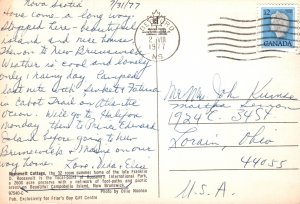 Nova Scotia 7/31/77
Have come a long way
Stopped here - beautiful
island and nice house.
then to New Brunswick.
Weather is cool and lovely
only 1 rainy day. Camped
last nite with Sunset & Petunia
in Cabot Trail on Atlantic
Ocean. Will go to Halifax
Monday then to Prince Edward
Island before going to New
Brunswick & Maine on our
way home. Love,
Roosevelt Cottage, the 32 room summer home of the late Franklin
D. Roosevelt is the focal point of Roosevelt International Park,
a 2600 acre preserve with a network of foot-paths and picnic
areas. Beautiful Campobello Island, New Brunswick.
97540-C Photo by Olaie Noonan
Pub. Exclusively for Friar's Bay Gift Centre
2 VIII
1977
NS
12
CANADA
Mr Mrs John
Martha
1924 C. 34St
Lorain Ohio
44055
U.S.A.